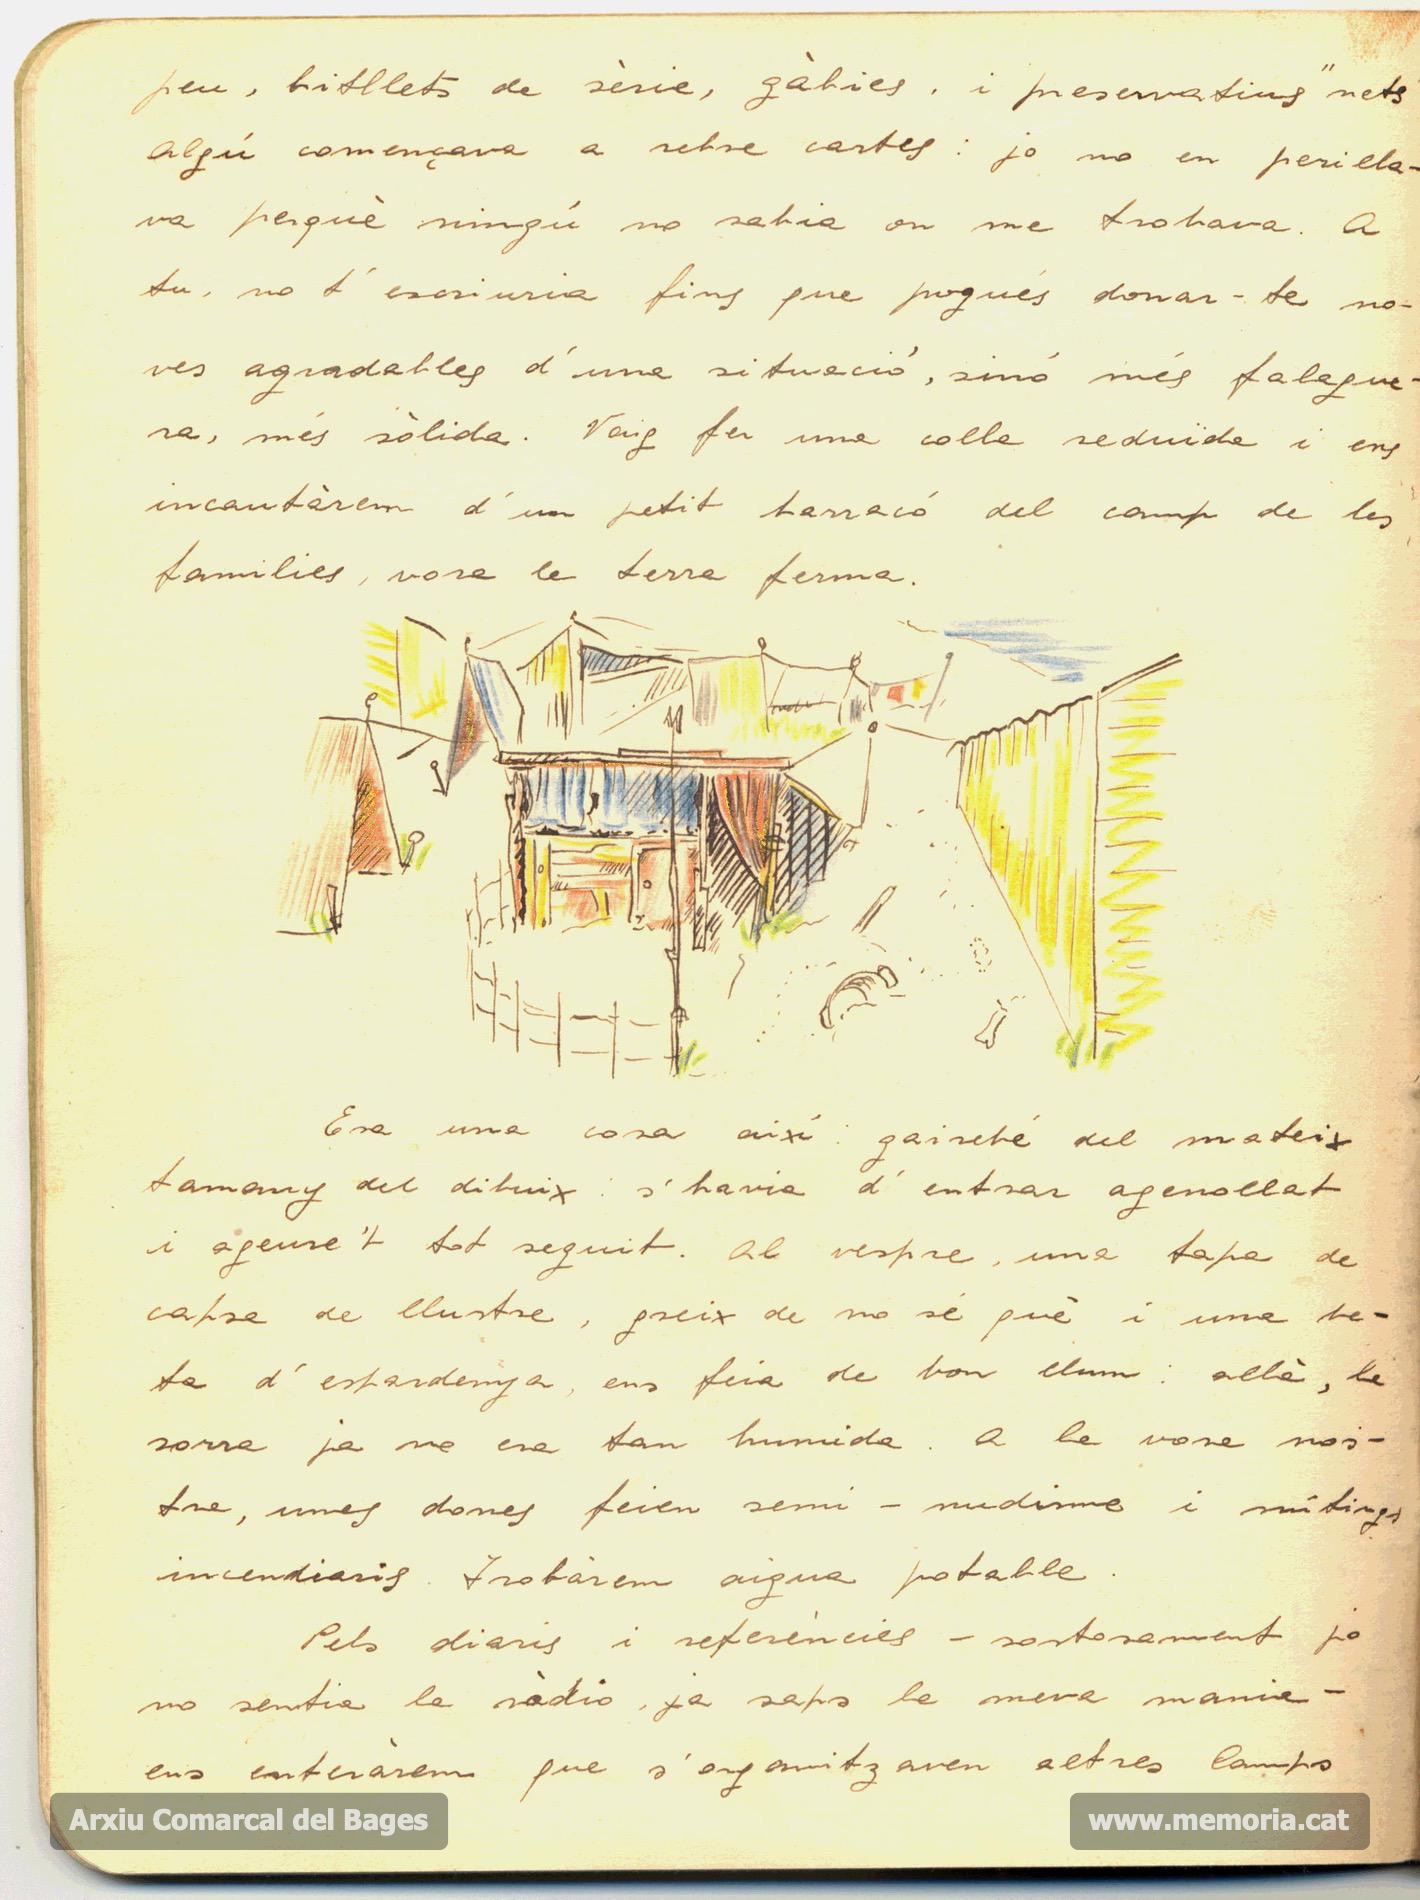 peu, bitllets de sèrie, gàbies, i preservatius "nets
Algú començava a rebre cartes: jo no en perilla-
va perquè ningú no sabia on me trobava. A
tu, no t'escriuria fins que pogués donar-te no-
ves agradables d'una situació, sinó més falague-
ra, més sòlida. Vaig fer una colla reduïda i ens
incautàrem d'un petit barracó del camp de les
famílies, vora la terra ferma.
Era una cosa així: gairebé del mateix
tamany del dibuix: s'havia d'entrar agenollat
i ageure't tot seguit. Al vespre, una tapa de
capsa de llustre, greix de no sé què i una be-
ta d'espardenya, ens feia de bon llum: allà, la
sorra ja no era tan humida. A la vora nos-
tra, unes dones feien semi-nudisme i mítings
incendiaris. Trobàrem aigua potable.
Pels diaris i referències - sortosament jo
no sentia la ràdio, ja saps la meva mania -
ens enteràrem que s'organitzaven altres Camps
Arxiu Comarcal del Bages
www.memoria.cat